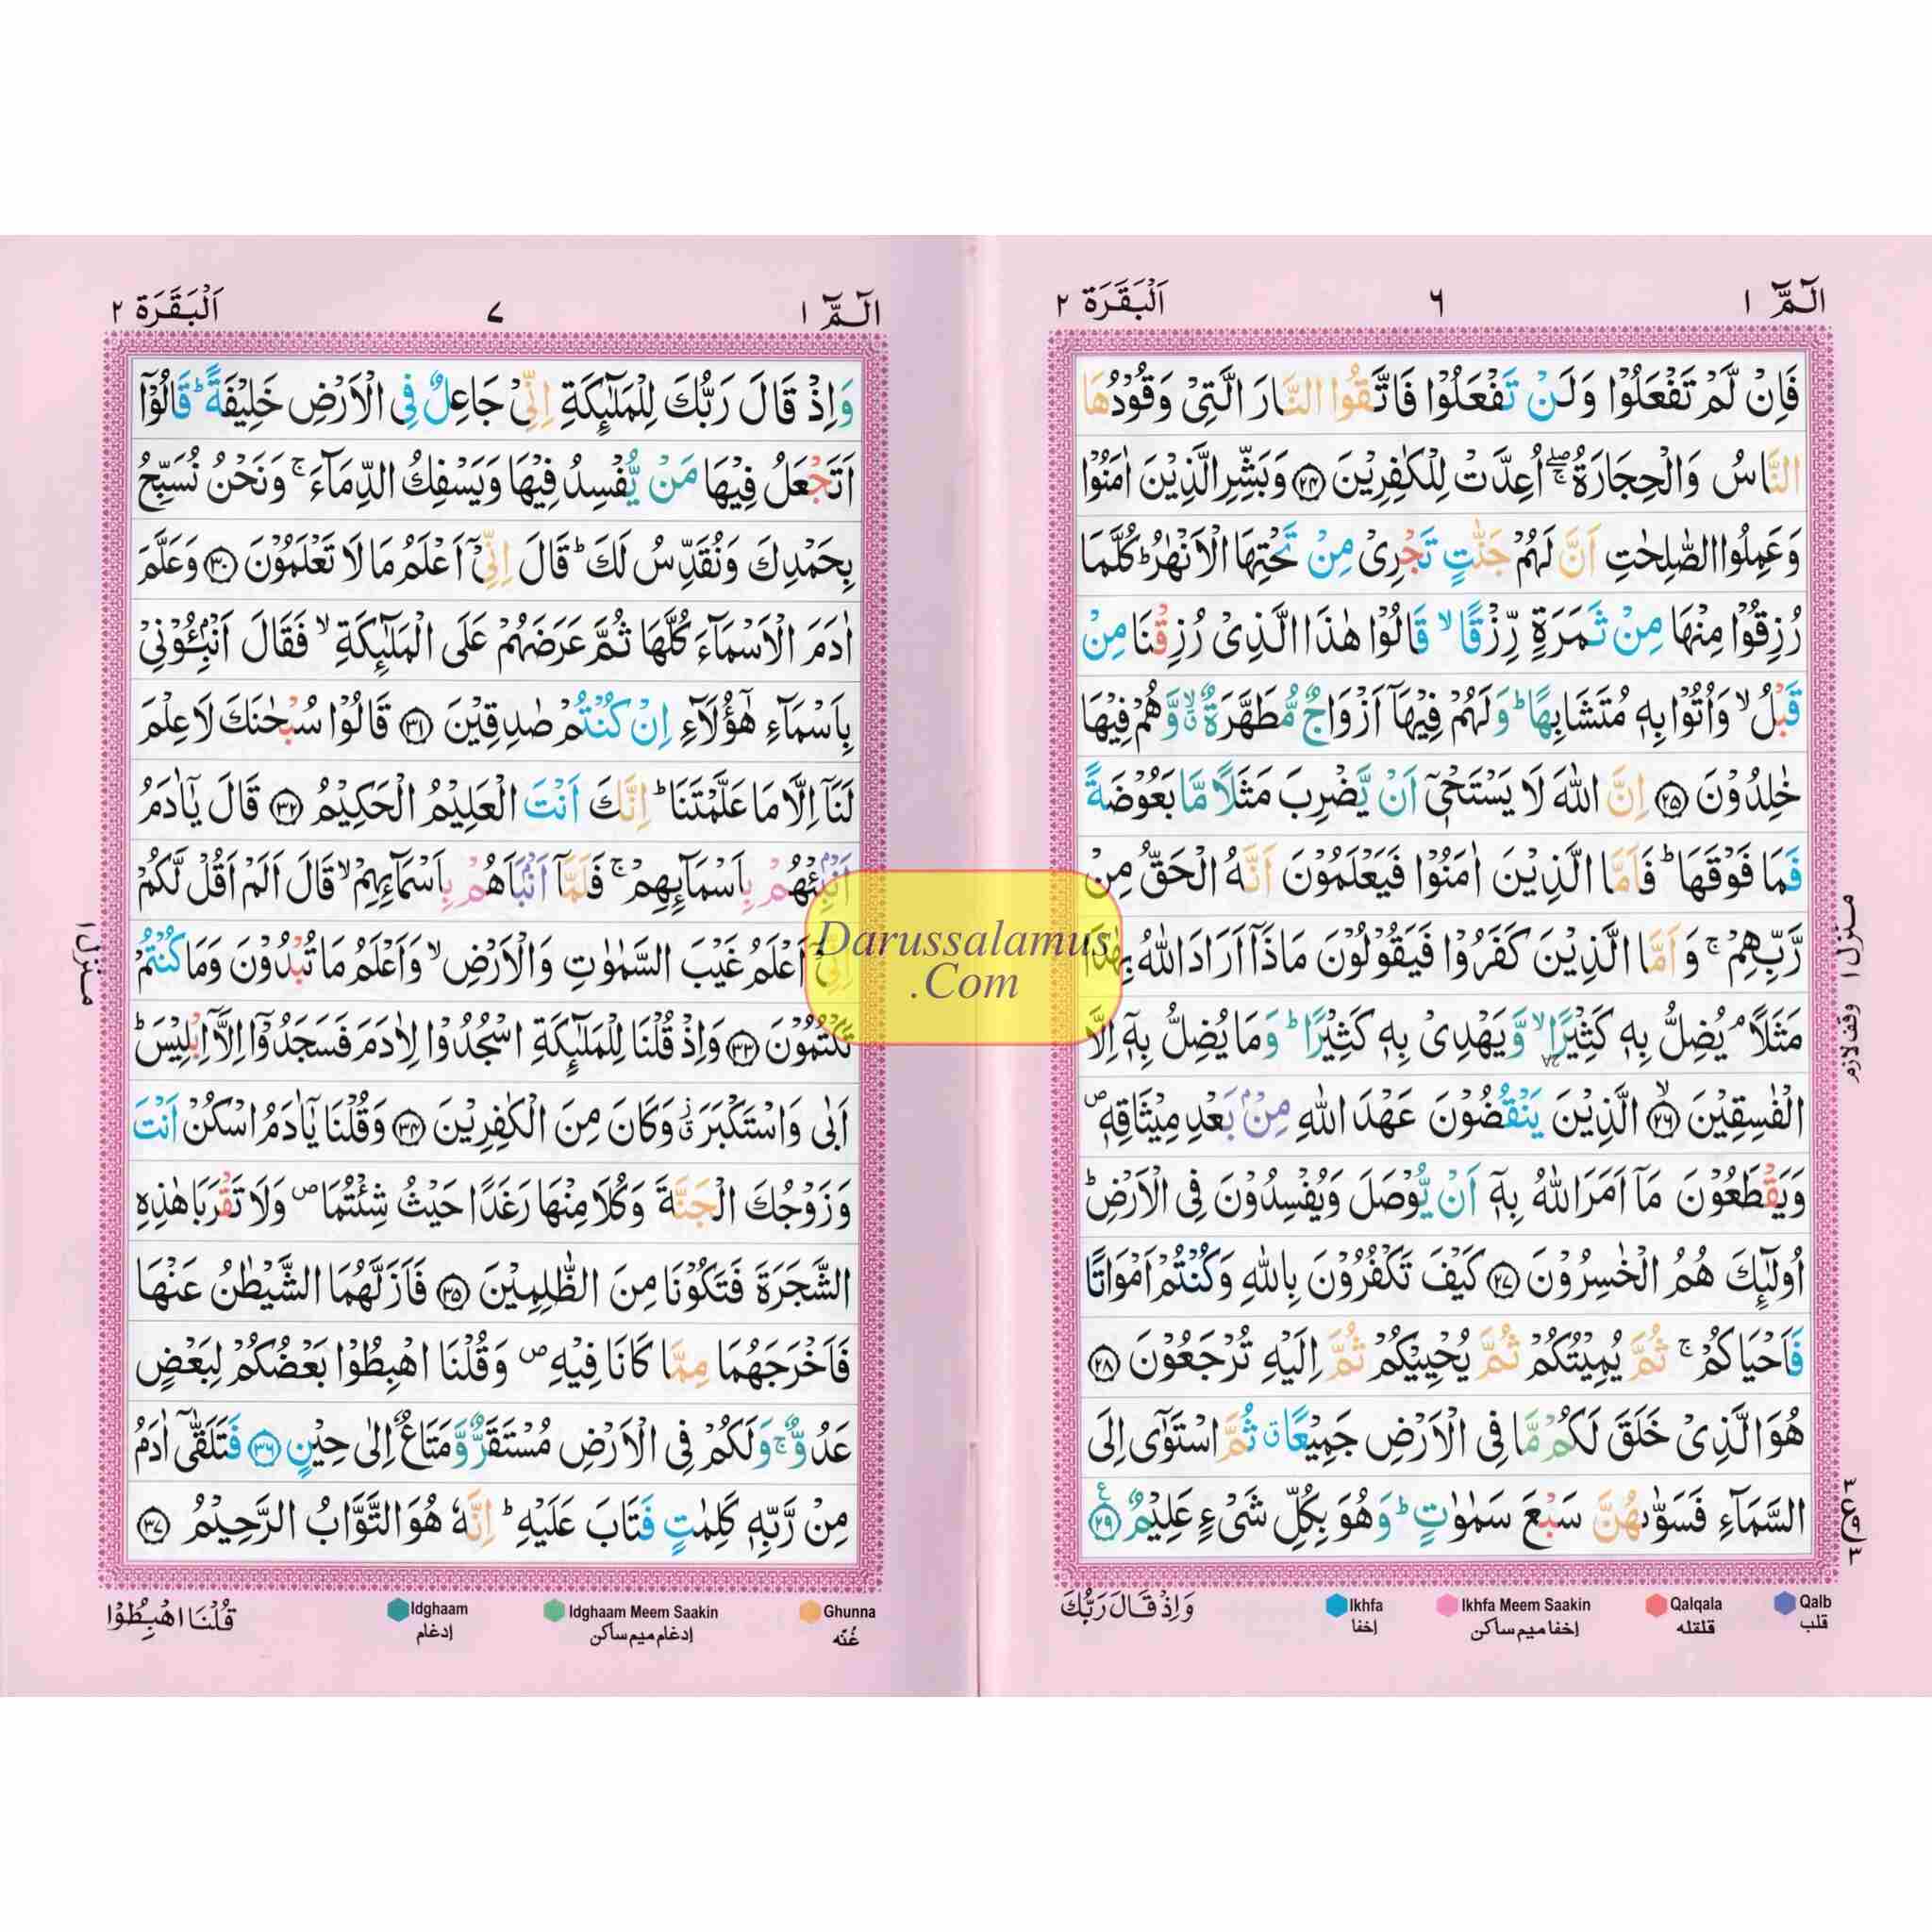 الٓمّٓ ١
٦
اَلْبَقَرَة ٢
فَاِنْ لَّمْ تَفْعَلُوْا وَلَنْ تَفْعَلُوْا فَاتَّقُوا النَّارَ الَّتِیْ وَقُوْدُهَا
النَّاسُ وَالْحِجَارَةُ ۖۚ اُعِدَّتْ لِلْكٰفِرِیْنَ ﴿۲۴﴾ وَبَشِّرِ الَّذِیْنَ اٰمَنُوْا
وَعَمِلُوا الصّٰلِحٰتِ اَنَّ لَهُمْ جَنّٰتٍ تَجْرِیْ مِنْ تَحْتِهَا الْاَنْهٰرُ ؕ كُلَّمَا
رُزِقُوْا مِنْهَا مِنْ ثَمَرَةٍ رِّزْقًا ۙ قَالُوْا هٰذَا الَّذِیْ رُزِقْنَا مِنْ
قَبْلُ ۙ وَاُتُوْا بِهٖ مُتَشَابِهًا ؕ وَلَهُمْ فِیْهَاۤ اَزْوَاجٌ مُّطَهَّرَةٌ ۙۗ وَّهُمْ فِیْهَا
خٰلِدُوْنَ ﴿۲۵﴾ اِنَّ اللّٰهَ لَا یَسْتَحْیٖۤ اَنْ یَّضْرِبَ مَثَلًا مَّا بَعُوْضَةً
فَمَا فَوْقَهَا ؕ فَاَمَّا الَّذِیْنَ اٰمَنُوْا فَیَعْلَمُوْنَ اَنَّهُ الْحَقُّ مِنْ
رَّبِّهِمْ ۚ وَاَمَّا الَّذِیْنَ كَفَرُوْا فَیَقُوْلُوْنَ مَاذَاۤ اَرَادَ اللّٰهُ بِهٰذَا
مَثَلًا ۘ یُضِلُّ بِهٖ كَثِیْرًا ۙ وَّیَهْدِیْ بِهٖ كَثِیْرًا ؕ وَمَا یُضِلُّ بِهٖۤ اِلَّا
الْفٰسِقِیْنَ ﴿۲۶﴾ ۙ الَّذِیْنَ یَنْقُضُوْنَ عَهْدَ اللّٰهِ مِنْۢ بَعْدِ مِیْثَاقِهٖ ۪
وَیَقْطَعُوْنَ مَاۤ اَمَرَ اللّٰهُ بِهٖۤ اَنْ یُّوْصَلَ وَیُفْسِدُوْنَ فِی الْاَرْضِ ؕ
اُولٰٓئِكَ هُمُ الْخٰسِرُوْنَ ﴿۲۷﴾ كَیْفَ تَكْفُرُوْنَ بِاللّٰهِ وَكُنْتُمْ اَمْوَاتًا
فَاَحْیَاكُمْ ۚ ثُمَّ یُمِیْتُكُمْ ثُمَّ یُحْیِیْكُمْ ثُمَّ اِلَیْهِ تُرْجَعُوْنَ ﴿۲۸﴾
هُوَ الَّذِیْ خَلَقَ لَكُمْ مَّا فِی الْاَرْضِ جَمِیْعًا ۗ ثُمَّ اسْتَوٰۤی اِلَی
السَّمَآءِ فَسَوّٰىهُنَّ سَبْعَ سَمٰوٰتٍ ؕ وَهُوَ بِكُلِّ شَیْءٍ عَلِیْمٌ ﴿۲۹﴾
منزل ١
وقف لازم
٣
ع
٩
٣
Qalb
قلب
Qalqala
قلقله
Ikhfa Meem Saakin
إخفا ميم ساكن
Ikhfa
إخفا
وَاِذْ قَالَ رَبُّكَ
الٓمّٓ ١
٧
اَلْبَقَرَة ٢
وَاِذْ قَالَ رَبُّكَ لِلْمَلٰٓئِكَةِ اِنِّیْ جَاعِلٌ فِی الْاَرْضِ خَلِیْفَةً ؕ قَالُوْۤا
اَتَجْعَلُ فِیْهَا مَنْ یُّفْسِدُ فِیْهَا وَیَسْفِكُ الدِّمَآءَ ۚ وَنَحْنُ نُسَبِّحُ
بِحَمْدِكَ وَنُقَدِّسُ لَكَ ؕ قَالَ اِنِّیْۤ اَعْلَمُ مَا لَا تَعْلَمُوْنَ ﴿۳۰﴾ وَعَلَّمَ
اٰدَمَ الْاَسْمَآءَ كُلَّهَا ثُمَّ عَرَضَهُمْ عَلَی الْمَلٰٓئِكَةِ ۙ فَقَالَ اَنْۢبِـُٔوْنِیْ
بِاَسْمَآءِ هٰۤؤُلَآءِ اِنْ كُنْتُمْ صٰدِقِیْنَ ﴿۳۱﴾ قَالُوْا سُبْحٰنَكَ لَا عِلْمَ
لَنَاۤ اِلَّا مَا عَلَّمْتَنَا ؕ اِنَّكَ اَنْتَ الْعَلِیْمُ الْحَكِیْمُ ﴿۳۲﴾ قَالَ یٰۤاٰدَمُ
اَنْۢبِئْهُمْ بِاَسْمَآئِهِمْ ۚ فَلَمَّاۤ اَنْۢبَاَهُمْ بِاَسْمَآئِهِمْ ۙ قَالَ اَلَمْ اَقُلْ لَّكُمْ
اِنِّیْۤ اَعْلَمُ غَیْبَ السَّمٰوٰتِ وَالْاَرْضِ ۙ وَاَعْلَمُ مَا تُبْدُوْنَ وَمَا كُنْتُمْ
تَكْتُمُوْنَ ﴿۳۳﴾ وَاِذْ قُلْنَا لِلْمَلٰٓئِكَةِ اسْجُدُوْا لِاٰدَمَ فَسَجَدُوْۤا اِلَّاۤ اِبْلِیْسَ ؕ
اَبٰی وَاسْتَكْبَرَ ۗ وَكَانَ مِنَ الْكٰفِرِیْنَ ﴿۳۴﴾ وَقُلْنَا یٰۤاٰدَمُ اسْكُنْ اَنْتَ
وَزَوْجُكَ الْجَنَّةَ وَكُلَا مِنْهَا رَغَدًا حَیْثُ شِئْتُمَا ۪ وَلَا تَقْرَبَا هٰذِهِ
الشَّجَرَةَ فَتَكُوْنَا مِنَ الظّٰلِمِیْنَ ﴿۳۵﴾ فَاَزَلَّهُمَا الشَّیْطٰنُ عَنْهَا
فَاَخْرَجَهُمَا مِمَّا كَانَا فِیْهِ ۪ وَقُلْنَا اهْبِطُوْا بَعْضُكُمْ لِبَعْضٍ
عَدُوٌّ ۚ وَلَكُمْ فِی الْاَرْضِ مُسْتَقَرٌّ وَّمَتَاعٌ اِلٰی حِیْنٍ ﴿۳۶﴾ فَتَلَقّٰۤی اٰدَمُ
مِنْ رَّبِّهٖ كَلِمٰتٍ فَتَابَ عَلَیْهِ ؕ اِنَّهٗ هُوَ التَّوَّابُ الرَّحِیْمُ ﴿۳۷﴾
منزل ١
Ghunna
غُنّه
Idghaam Meem Saakin
إدغام ميم ساكن
Idghaam
إدغام
قُلْنَا اهْبِطُوْا
Darussalamus
.Com